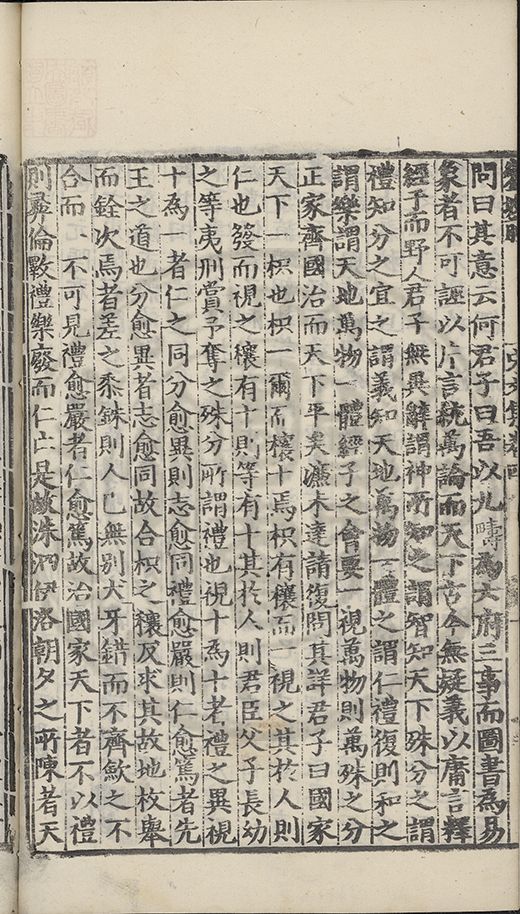 問曰其意云何君子曰吾以九疇為六府三事而圖書為易
象者不可誣以片言統萬論而天下古今無疑義以庸言釋
經子而野人君子無異辭謂神所知之謂智知天下殊分之謂
禮知分之宜之謂義知天地萬物一體之謂仁禮復則和之
謂樂謂天地萬物一體經子之會要一視萬物則萬殊之分
正家齊國治而天下平矣濂未達請復問其詳君子曰國家
天下一枳也枳一爾而穰十焉枳有穰而一視之其於人則
仁也發而視之穰有十則等有十其於人則君臣父子長幼
之等夷刑賞予奪之殊分所謂禮也視十為十者禮之異視
十為一者仁之同分愈異則志愈同禮愈嚴則仁愈篤者先
王之道也分愈異者志愈同故合枳之穰反求其故地枚舉
而銓次焉者差之黍銖則人己無別犬牙錯而不齊斂之不
合而 不可見禮愈嚴者仁愈篤故治國家天下者不以禮
則彝倫斁禮樂廢而仁亡是故洙泗伊洛朝夕之所陳者天